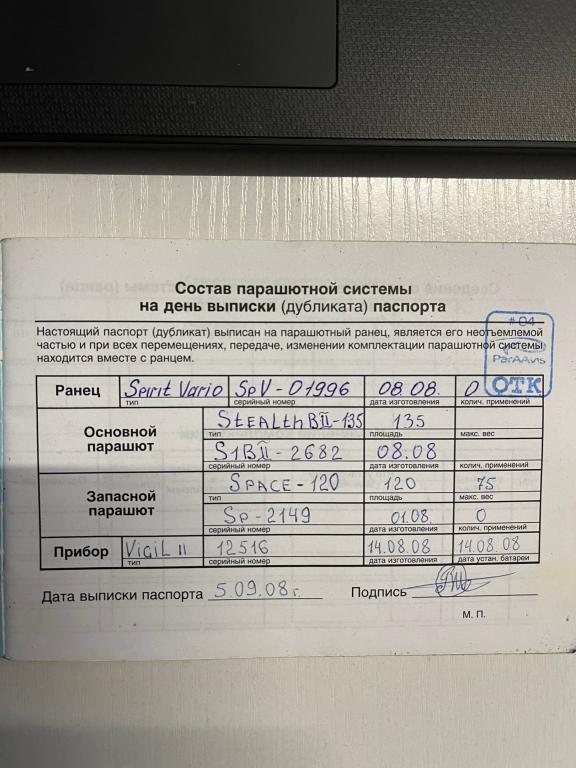 Состав парашютной системы
на день выписки (дубликата) паспорта
Настоящий паспорт (дубликат) выписан на парашютный ранец, является его неотъемлемой
частью и при всех перемещениях, передаче, изменении комплектации парашютной системы
находится вместе с ранцем.
#04
ParAAvis
ОТК
Ранец Spirit Vario SpV-01996 08.08. 0
тип серийный номер дата изготовления колич. применений
Основной парашют StEALth BII-135 135
тип площадь макс. вес
S1BII-2682 08.08
серийный номер дата изготовления колич. применений
Запасной парашют SPACE-120 120 75
тип площадь макс. вес
Sp-2149 01.08. 0
серийный номер дата изготовления колич. применений
Прибор ViGiL II 12516 14.08.08 14.08.08
тип серийный номер дата изготовления дата устан. батареи
Дата выписки паспорта 5.09.08г. Подпись
М. П.